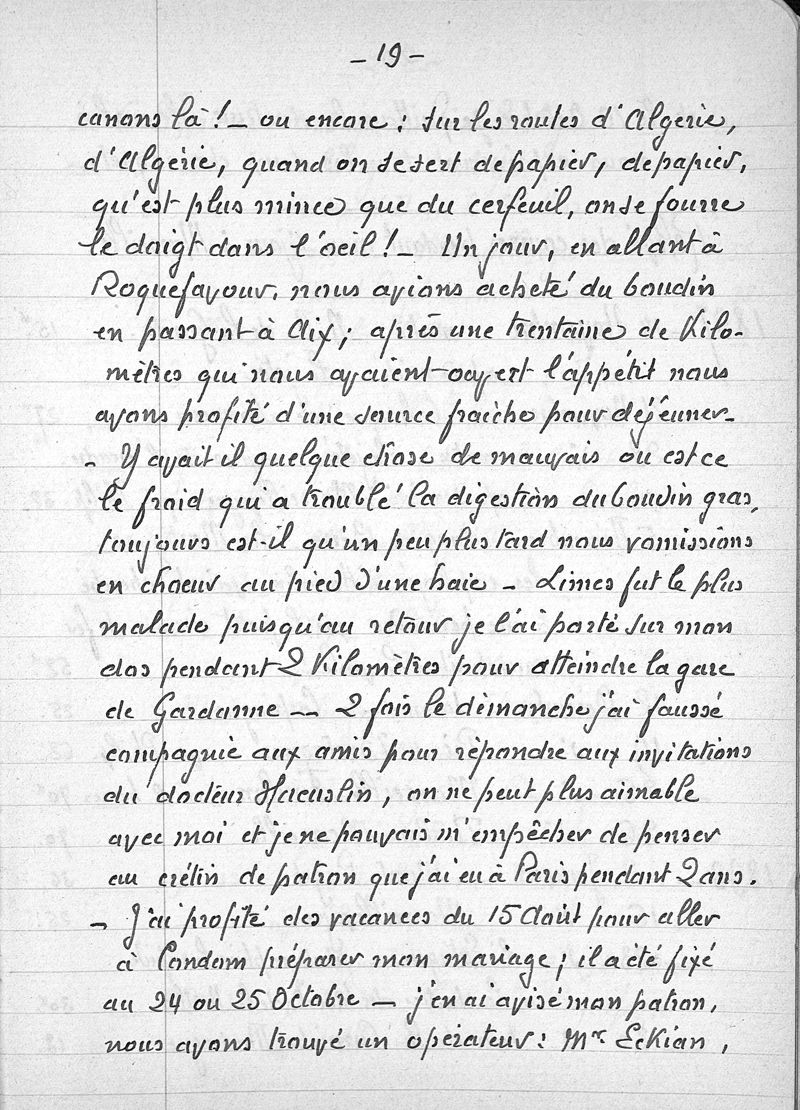 - 19 -
canons là ! - ou encore : sur les routes d'Algérie,
d'Algérie, quand on se sert de papier, de papier,
qu'est plus mince que du cerfeuil, on se fourre
le doigt dans l'oeil ! - Un jour, en allant à
Roquefavour, nous avions acheté du boudin
en passant à Aix ; après une trentaine de Kilo-
mètres qui nous avaient ouvert l'appétit nous
avons profité d'une source fraîche pour déjeuner -
- Y avait il quelque chose de mauvais ou est ce
le froid qui a troublé la digestion du boudin gras,
toujours est-il qu'un peu plus tard nous vomissions
en choeur au pied d'une haie - Limes fut le plus
malade puisqu'au retour je l'ai porté sur mon
dos pendant 2 Kilomètres pour atteindre la gare
de Gardanne -- 2 fois le dimanche j'ai faussé
compagnie aux amis pour répondre aux invitations
du docteur Haeuslin, on ne peut plus aimable
avec moi et je ne pouvais m'empêcher de penser
au crétin de patron que j'ai eu à Paris pendant 2 ans.
- J'ai profité des vacances du 15 Août pour aller
à Condom préparer mon mariage ; il a été fixé
au 24 ou 25 Octobre - j'en ai avisé mon patron,
nous avons trouvé un opérateur : Mr Eckian,